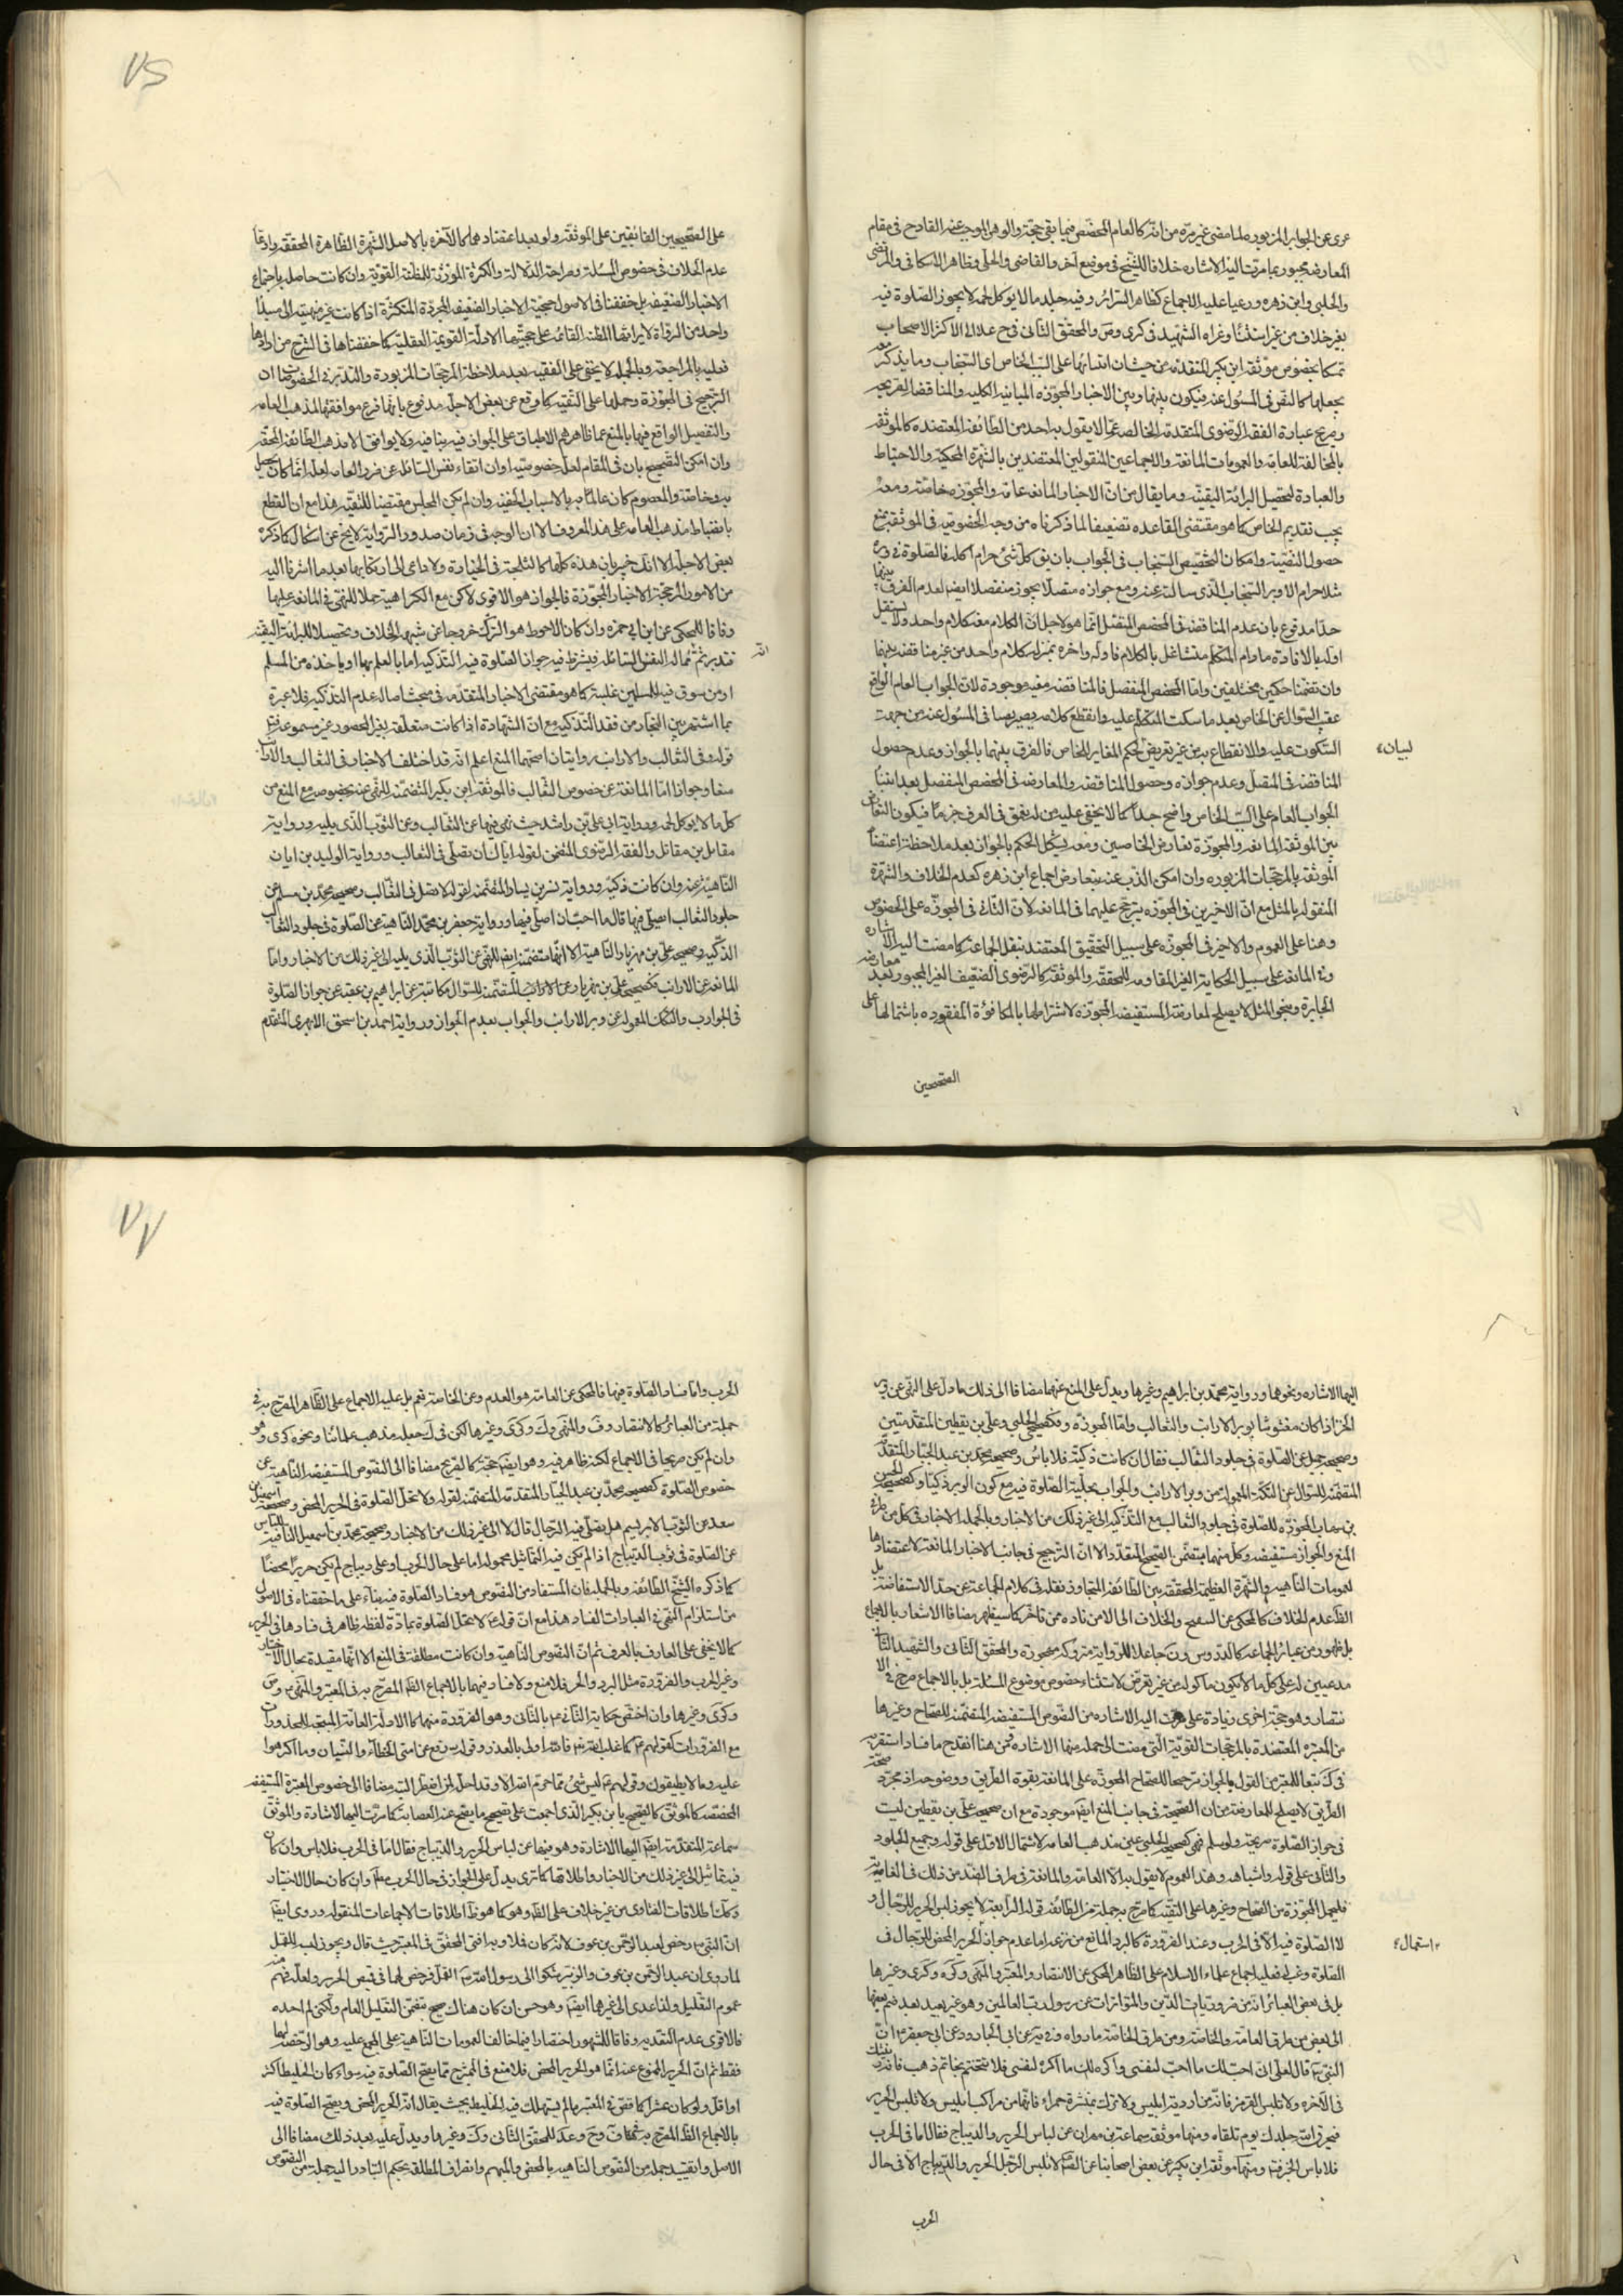 ٧٥
عرى عن الجواب المزبوره لما مضى غير مرة من انه كالعام المخصص فيما بقى حجة والوهن الموجب عنه القادح فى مقام
المعارضه مجبور بما مرت اليه الاشاره خلافا للشيخ فى موضع آخر والقاضى والحلى وظاهر الاسكافى والمرتضى
والحلبى وابن زهره ورعيا عليه الاجماع كظاهر السرائر وفيه جلد ما لا يوكل لحمه لا يجوز الصلوة فيه
بغير خلاف من غير استثناء وعزاه الشهيد فى كرى وض والمحقق الثانى فى ح عد الى الاكثر الاصحاب
تمسكا بخصوص موثقة ابن بكير المتقدمة من حيث ابتنائها على السبب الخاص اى السنجاب وما يذكر معه
يجعلها كالنص فى المسئول عنه فيكون بينها وبين الاخبار المجوزه المباينه الكليه والمناقضه
وصريح عبارة الفقه الرضوى المتقدمة الخالصه عما لا يقول به احد من الطائفه المعتضده كالموثقه
بالمخالفة للعامة والعمومات المانعة والاجماعين المنقولين المعتضدين بالشهرة المحكية والاحتياط
والعبادة لتحصيل البرائة اليقينيه وما يقال من ان الاخبار المانعه عامة والمجوزه خاصة ومعه
يجب تقديم الخاص كما هو مقتضى القاعده تضعيفا لما ذكرناه من وجه الخصوص فى الموثقه بمنع
حصول النصية وامكان التخصيص السنجاب فى الجواب بان يق كل شئ حرام اكله فالصلوة فى وبره
مثلا حرام الا وبر السنجاب الذى سالت عنه ومع جوازه متصلا يجوز منفصلا ايضا لعدم الفرق بينهما
جدا مدفوع بان عدم المناقضه فى المخصص المتصل انما هو لاجل ان الكلام معه كلام واحد ولا يستقل
اوله بالافادة ما دام المتكلم متشاغل بالكلام فاوله واخره بمنزلة كلام واحد من غير مناقضه بينهما
وان تضمنا حكمين مختلفين واما المخصص المنفصل فالمناقضه معه موجودة لان الجواب العام الواقع
عقيب السؤال عن الخاص بعد ما سكت المتكلم عليه وانقطع كلامه يصير نصا فى المسئول عنه من جهت
السكوت عليه والانقطاع به من غير تعريض لحكم المغاير للخاص فالفرق بينهما بالجواز وعدم حصول
لبيان
المناقضه فى المتصل وعدم جوازه وحصول المناقضه والمعارضه فى المخصص المنفصل بعد ابتناء
الجواب العام على السبب الخاص واضح جدا كما لا يخفى على من له ذوق فى العرف جزما فيكون التعارض
بين الموثقة المانعه والمجوزة تعارض الخاصين ومعه يشكل الحكم بالجواز بعد ملاحظة اعتضاد
الموثقه بالمرجحات المزبوره وان امكن الذب عنه بتعارض اجماع ابن زهره كعدم الخلاف والشهرة
المنقوله بالمثل مع ان الاخيرين فى المجوزه يترجح عليهما فى المانعه لان الثلثة فى المجوزه على الخصوص
وهنا على العموم والاخير فى المجوزه على سبيل التحقيق المعتضد بنقل الجماعة كما مضت اليه الاشاره
وفى المانعه على سبيل الحكاية الغير المقاومه للمحققة والموثقة كالرضوى الضعيف الغير المجبور بعد معارضه
الجابرة وبنحو المثل لا يصلح لمعارضة المستفيضه المجوزه لاشتراطها بالمكافؤة المفقوده باشتمالها على
الصحيحين
على الصحيحين الفائقين على الموثقه ولو بعد اعتضادهما كالآخره بالاصل الشهرة الظاهرة المحققه وادعاء
عدم الخلاف فى خصوص المسئلة وصراحة الدلالة والكثرة المورثة للمظنة القوية وان كانت حاصله باجتماع
الاخبار الضعيفه بل حققنا فى الاصول حجية الاخبار الضعيفه المجردة المتكثرة اذا كانت غير منتهية الى مبدأ
واحد من الرواة لايراثها المظنة القائمة على حجيتها الادلة القويمة العقلية كما حققناها فى الشرح من ارادها
فعليه بالمراجعة وبالجمله لا يخفى على الفقيه بعد ملاحظة المرجحات المزبورة والتدبر فى الخصوصيات ان
الترجيح فى المجوزة وحملها على التقيه كما وقع عن بعض الاجلة مدفوع بانها فرع موافقتها لمذهب العامه
والتفصيل الواقع فيها بالمنع عما ظاهرهم الاطباق على الجواز فيه ينافيه ولا يوافق الا مذهب الطائفه المحقه
وان امكن التصحيح بان فى المقام لعل خصوصية اوان اتقاء نفس السائل عن ضرر العامه لعله انما كان يحصل
به وخاصة والمعصوم كان عالما به بالاسباب الخفيه وان لم يكن المجلس مقتضيا للتقيه هذا مع ان القطع
بانضباط مذهب العامه على هذا المعروف الان الوجه فى زمان صدور الرواية لا ينج عن اشكال كما ذكره
بعض الاجلة الا انك خبير بان هذه كلها كالثلجة فى الخيارة ولا داعى الى ارتكابها بعد ما اشرنا اليه
من الامور المرجحة الاخبار المجوزة فالجواز هو الاقوى لاكن مع الكراهية حملا للنهى فى المانعه عليها
وفاقا للمحكى عن ابنابى حمزه وان كان الاحوط هو الترك خروجا عن شبهه الخلاف وتحصيلا للبرائة اليقينيه
فتدبر ثم ماله النفس السائله فيشترط فيه جواز الصلوة فيه التذكيه اما بالعلم بها او ياخذه من المسلم
او من سوق فيه المسلمين غلبة كما هو مقتضى الاخبار المتقدمه فى مبحث اصالة عدم التذكيه فلا عبرة
بما اشتهر بين التجار من فقد التذكيه مع ان الشهادة اذا كانت متعلقة بغير المحصور غير مسموعه ثم
قوله وفى الثعالب والارانب روايتان اصحهما المنع اعلم انه قد اختلف الاخبار فى الثعالب والارانب
منعا وجوازا اما المانعة عن خصوص الثعالب فالموثقه ابن بكير المتضمنه للنهى عنه بخصوصه مع المنع من
كل ما لا يوكل لحمه ورواية ابى على بن راشد حيث نهى فيها عن الثعالب وعن الثوب الذى يليه ورواية
مقاتل بن مقاتل والفقه الرضوى المتضمن لقوله اياك ان تصلى فى الثعالب ورواية الوليد بن ابان
الناهية عنه وان كانت ذكيه ورواية بشر بن يسار المتضمنه لقوله لا تصل فى الثعالب وصحيحه محمد بن مسلم عن
جلود الثعالب ايصلى فيها قال ما احب ان اصلى فيها ورواية جعفر بن محمد الناهية عن الصلوة فى جلود الثعالب
الذكيه وصحيحه على بن مهزيار الناهية الا انها متضمنة ايضا للنهى عن الثوب الذى يليه الى غير ذلك من الاخبار واما
المانعه عن الارانب فكصحيحه على بن مهزيار وعن الارانب المتضمنه للسؤال مكاتبة عن ابراهيم بن عقبه عن جواز الصلوة
فى الجوارب والتكك المعموله من وبر الارانب والجواب بعدم الجواز ورواية احمد بن اسحق الابهرى المتقدم
٧٧
اليهما الاشاره ونحوهما ورواية محمد بن ابراهيم وغيرها ويدل على المنع عنهما مضافا الى ذلك ما دل على النهى عن وبر
الخز اذا كان مغشوشا بوبر الارانب والثعالب واما المجوزه فكصحيحى الحلبى وعلى بن يقطين المتقدمتين
وصحيحه جميل عن الصلوة فى جلود الثعالب فقال ان كانت ذكية فلا باس وصحيحه محمد بن عبد الجبار المتقدمه
المتضمنه للسؤال عن التكة المعموله من وبر الارانب والجواب بحلية الصلوة فيه مع كون الوبر ذكيا وكصحيحه الحسين
بن شهاب المجوزه للصلوة فى جلود الثعالب مع التذكيه الى غير ذلك من الاخبار وبالجمله الاخبار فى كل من طرفى
المنع والجواز مستفيضه وكل منهما متضمن الصحيح المتقدم الا ان الترجيح فى جانب الاخبار المانعة لاعتضادها
لعمومات الناهيه والشهرة العظيمة المحققة بين الطائفه المتجاوز نقله فى كلام الجماعة عن حد الاستفاضة بل
الظ عدم الخلاف كما لمحكى عن السفيح والخلاف الى الا من ناده ممن تاخر كما سيظهر مضافا الاشعار بالاجماع
بل ظهوره من عبائر الجماعه كالدروس وك جاعلا للرواية متروكه مهجورة والمحقق الثانى والشهيد الثانى
مدعيين له على كل ما لا يكون ماكوله من غير تعرض لاستثناء خصوص موضوع المسئلة بل بالاجماع صرح فى الا
نتصار وهو حجة اخرى زيادة على ما مرت اليه الاشاره من النصوص المستفيضه المتضمنه للصحاح وغيرها
من المعتبره المعتضدة بالمرجحات القوية التى مضت الى جمله منها الاشاره فمن هنا انقدح ما فساد استقربه
فى ك تبعا للمعتبر من القول بالجواز ترجيحا للصحاح المجوزه على المانعه بقوة الطريق ووضوحه اذ مجرد صحة
الطريق لا يصلح للمعارضة من ان الصحيحة فى جانب المنع ايضا موجودة مع ان صحيحه على بن يقطين ليست
فى جواز الصلوة صريحه ولو سلم فهى كصحيحه الحلبى عين مذهب العامه لاشتمال الاول على قوله وجميع الجلود
والثانى على قوله واشباهه وهذا العموم لا يقول به الا العامة والمانعه فى طرف الضد من ذلك فى الغاية
فليحمل المجوزة من الصحاح وغيرها على التقيه كما صرح به جملة من الطائفه قوله الرابعة لا يجوز لبس الحرير للرجال و
لا الصلوة فيه الا فى الحرب وعند الضرورة كالبرد المانع من نزعه اما عدم جواز الحرير المحض للرجال فى
استعمال
الصلوة وغيره فعليه اجماع علماء الاسلام على الظاهر المحكى عن الانتصار والمعتبر والمنتهى وك وكرى وغيرها
بل فى بعض العبائر انه من ضروريات الدين والمتواترات عن رسول رب العالمين وهو غير بعيد بعد ضم بعضها
الى بعض من طرق العامة والخاصة ومن طرق الخاصة ما رواه فى يه عن ابى الجارود عن ابى جعفر ع ان
النبى ص قال لعلى انى احب لك ما احب لنفسى واكره لك ما اكره لنفسى فلا تتختم بخاتم ذهب فانه زينتك
فى الآخره ولا تلبس القرمز فانه من اردية ابليس ولا تركب بميثرة حمراء فانها من مراكب ابليس ولا تلبس الحرير
فيحرق الله جلدك يوم تلقاه ومنها موثقه سماعة بن مهران عن لباس الحرير والديباج فقال اما فى الحرب
فلا باس الخبر ومنها موثقه ابن بكير عن بعض اصحابنا عن الص لا يلبس الرجل الحرير والديباج الا فى حال
الحرب
الحرب واما فساد الصلوة فيها فالمحكى عن العامة هو العدم وعن الخاصة نعم بل عليه الاجماع على الظاهر المصرح به فى
جملة من العبائر كالانتصار وف والمنتهى وك وكرى وغيرها لكن فى ك جعله مذهب علمائنا ونحوه كرى وهو
وان لم يكن صريحا فى الاجماع لكنه ظاهر فيه وهو ايضا حجة كالصريح مضافا الى النصوص المستفيضه الناهية عن
خصوص الصلوة كصحيحه محمد بن عبد الجبار المتقدمة المتضمنه لقوله ولا تحل الصلوة فى الحرير المحض وصحيحه اسمعيل بن
سعد عن الثوب الابريسم هل يصلى فيه الرجال قال لا الى غير ذلك من الاخبار وصحيحه محمد بن اسمعيل النافيه للباس
عن الصلوة فى ثوب الديباج اذا لم يكن فيه التماثيل محموله اما على حال الحرب او على ديباج لم يكن حريرا محضا
كما ذكره الشيخ الطائفه وبالجمله فان المستفاد من النصوص هو فساد الصلوة فيه بناء على ما حققناه فى الاصول
من استلزام النهى فى العبادات الفساد هذا مع ان قوله ع لا تحل الصلوة بمادة لفظه ظاهر فى فسادها فى الحرير
كما لا يخفى على العارف بالعرف ثم ان النصوص الناهية وان كانت مطلقة فى المنع الا انها مقيدة بحال الاختيار
وغير الحرب والضرورة مثل البرد والحر فلا منع ولا فساد فيهما بالاجماع الظ المصرح به فى المعتبر والمنتهى وض
وكرى وغيرها وان اختص حكاية الثانى بالثانى وهو الضرورة منهما كالادلة العامة المبيحه للمحذورات
مع الضرورات كقولهم ع كلما غلب الله عليه فالله اولى بالعذر وقوله ص رفع عن امتى الخطاء والنسيان وما اكرهوا
عليه وما لا يطيقون وقولهم ع ليس شئ مما حرم الله الا وقد احل لمن اضطر اليه مضافا الى خصوص المعتبرة المستفيضه
المخصصه كالموثق كالصحيح بابن بكير الذى اجمعت على تصحيح ما يصح عنه العصابة كما مرت اليها الاشارة والموثق
سماعة المتقدمة ايضا اليها الاشارة وهو فيها عن لباس الحرير والديباج فقال اما فى الحرب فلا باس وان كان
فيه تماثيل الى غير ذلك من الاخبار واطلاقها كما ترى يدل على الجواز فى حال الحرب مط وان كان حال الاختيار
وكك اطلاقات الفتاوى من غير خلاف على الظ وهو كما هو ظ اطلاقات الاجماعات المنقوله وروى ايضا
ان النبى ص رخص لعبد الرحمن بن عوف لانه كان قملا وبه افتى المحقق فى المعتبر حيث قال ويجوز لبسه للقمل
لما روى ان عبد الرحمن بن عوف والزبير شكوا الى رسول الله ص القمل فرخص لهما فى قميص الحرير ولعله فهم منه
عموم التعليل والتعدى الى غيرها ايضا وهو حسن ان كان هناك صح تضمن التعليل العام ولكنى لم اجده
فالاقوى عدم التعديه وفاقا للمشهور اختصارا فيما خالف العمومات الناهية على المجمع عليه وهو الرخصه لهما
فقط ثم ان الحرير الممنوع عنه انما هو الحرير المحض فلا منع فى الممتزج مما يصح الصلوة فيه سواء كان الخليط اكثر
او اقل ولو كان عشرا كما فى المعتبر ما لم يستهلك فيه الخليط بحيث يقال انه الحرير المحض ويصح الصلوة فيه
بالاجماع الظ المصرح به فى ف وح وعد للمحقق الثانى وك وغيرها ويدل عليه بعد ذلك مضافا الى
الاصل وتقييد جملة من النصوص الناهيه بالمحض والمبهم وانصراف المطلقه بحكم التبادر اليه جملة من النصوص